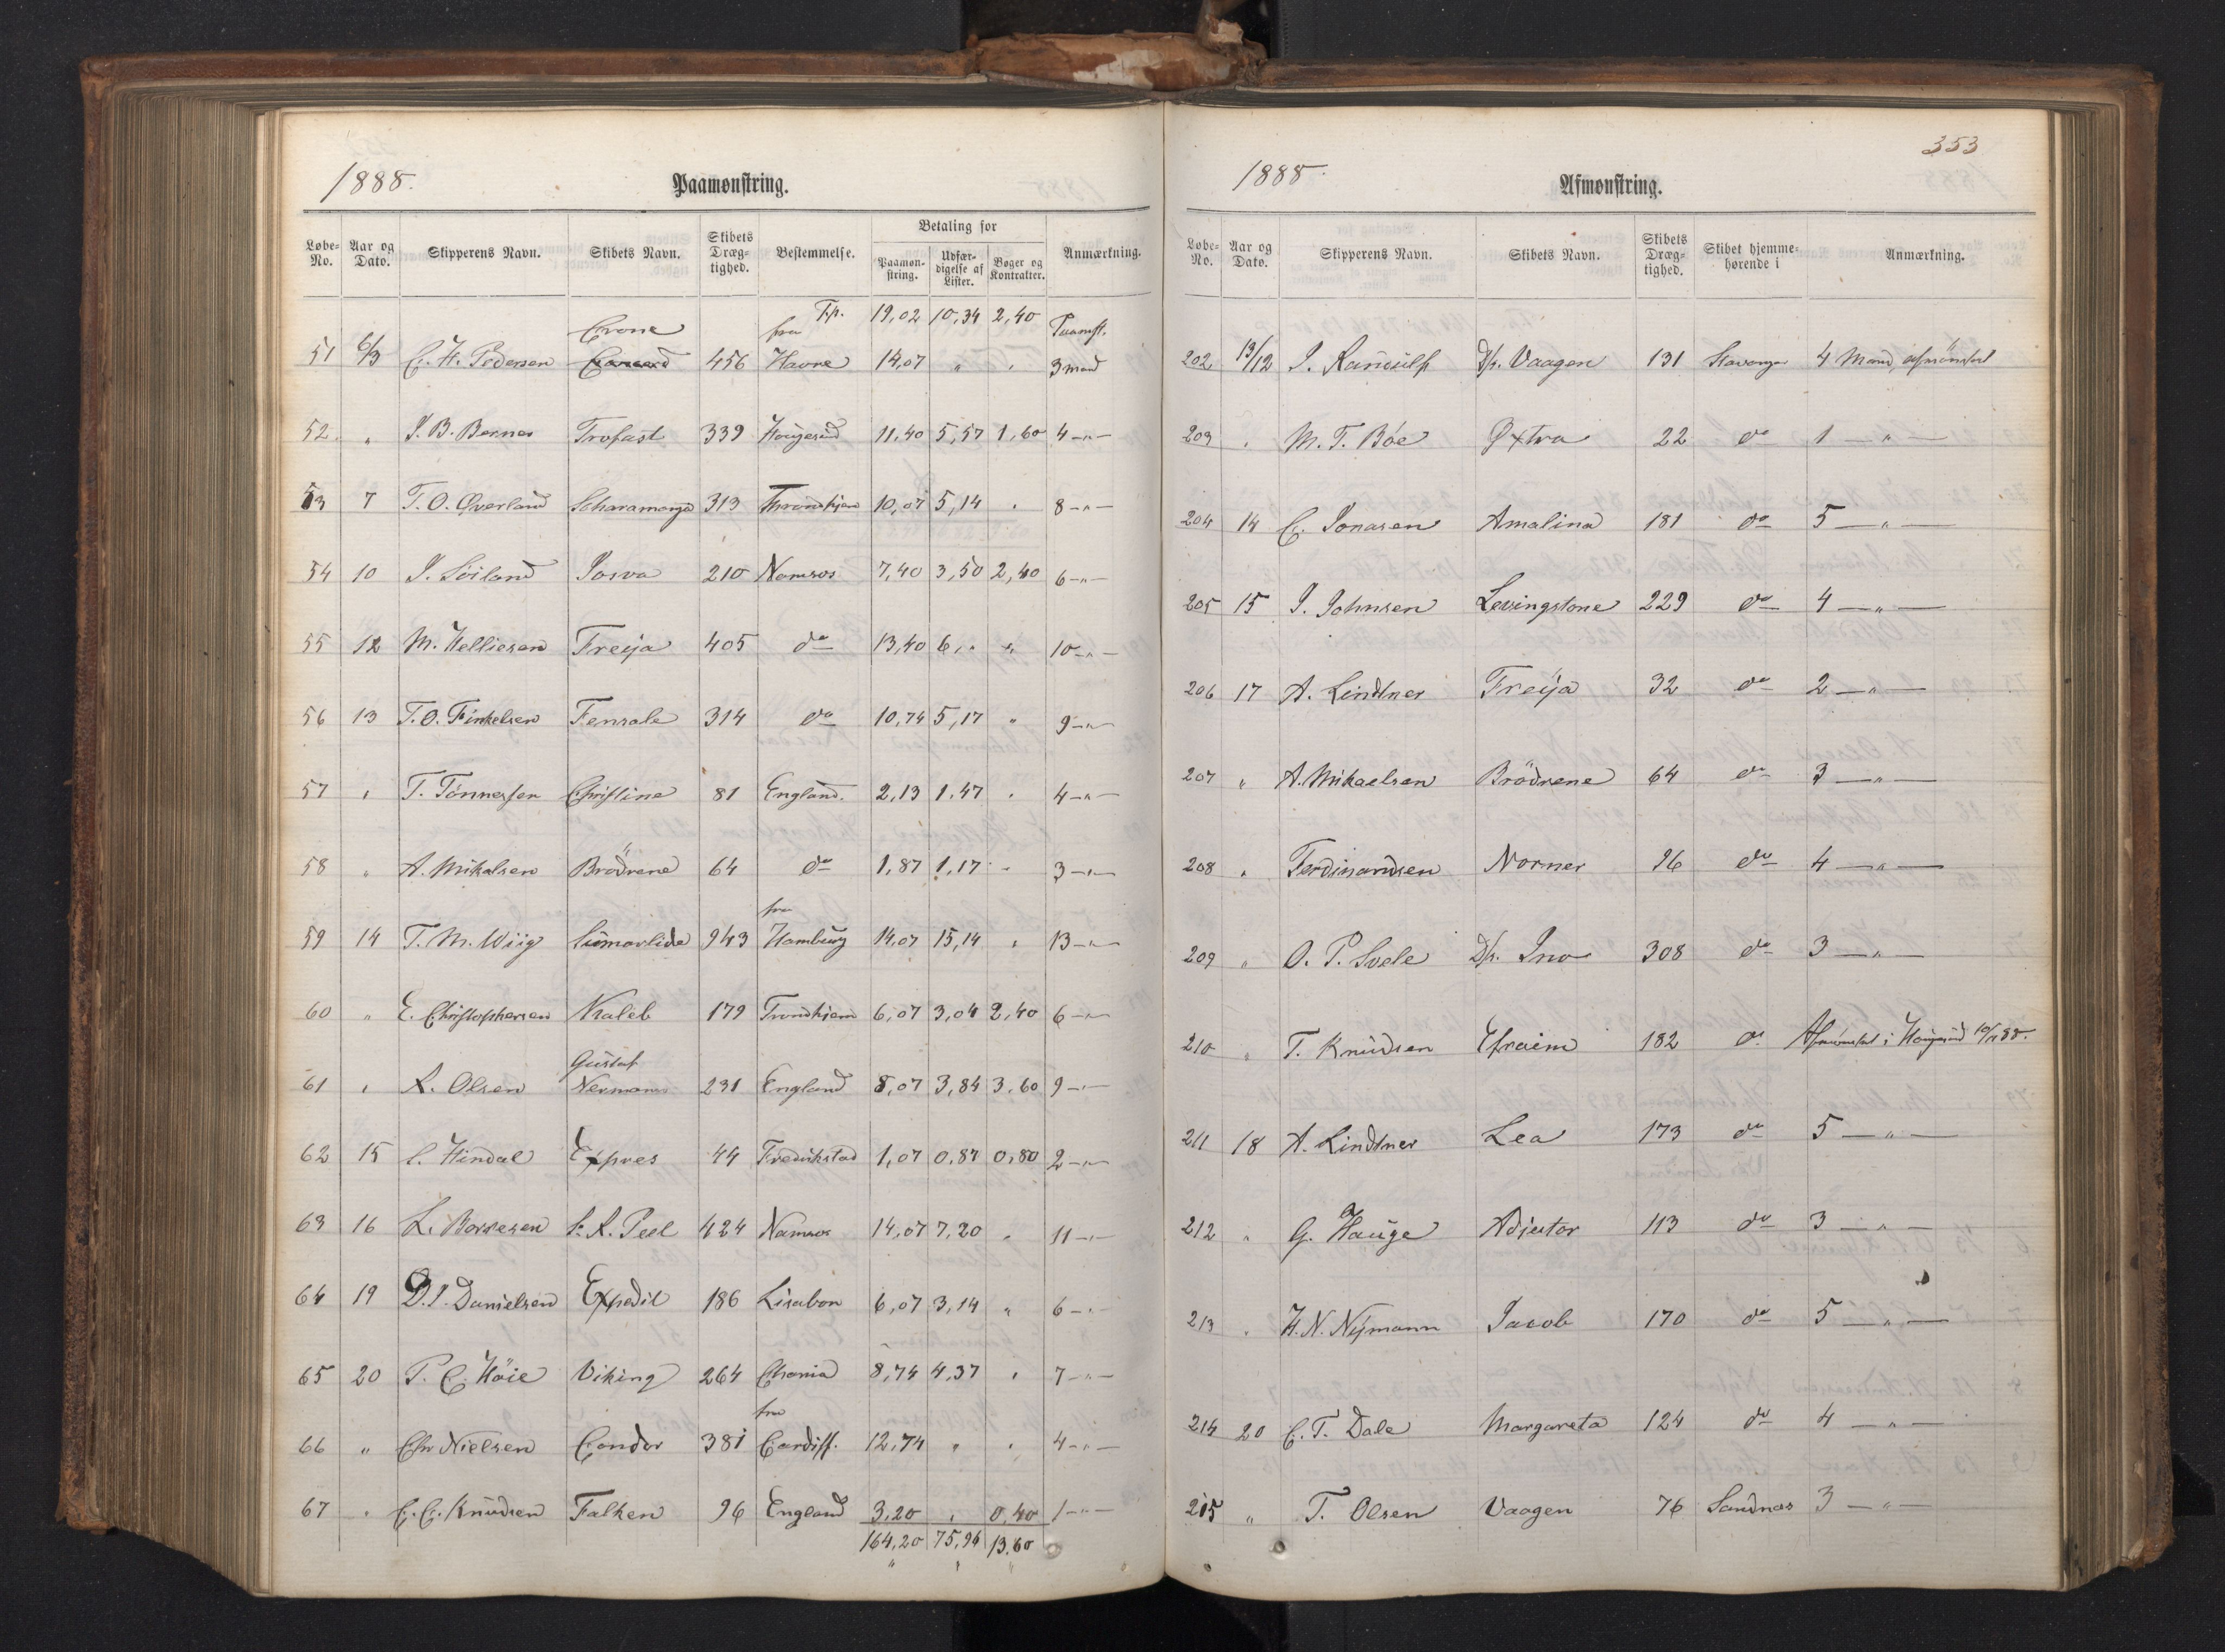 1888.
Paamønstring.
Løbe-No. Aar og Dato. Skipperens Navn. Skibets Navn. Skibets Drægtighed. Bestemmelse. Betaling for Paamønstring. Udfærdigelse af Lister. Bøger og Kontrakter. Anmærkning.
Tp. 19,02 10,34 2,40
51 6/3 C. H. Pedersen Crone 456 fra Havre 14,07 " " Paamst. 3 mand
52 " J. B. Bernes Trofast 339 Haugesund 11,40 5,57 1,60 4 -"-
53 7 T. O. Qverland Scharamanga 313 Throndhjem 10,07 5,14 " 8 -"-
54 10 J. Söiland Josva 210 Namsos 7,40 3,50 2,40 6 -"-
55 12 M. Helliesen Freija 405 do 13,40 6," " 10 -"-
56 13 T. O. Finkelsen Fensale 314 do 10,74 5,17 " 9 -"-
57 " T. Tönnessen Christine 81 England. 2,13 1,47 " 4 -"-
58 " A. Mikalsen Brödrene 64 do 1,87 1,17 " 3 -"-
59 14 T. M. Wiig Sumarlide 943 fra Hamburg 14,07 15,14 " 13 -"-
60 " E. Christophersen Kaleb 179 Trondhjem 6,07 3,04 2,40 6 -"-
61 " A. Olsen Gustaf Nermann 231 England 8,07 3,84 3,60 9 -"-
62 15 Hindal Expres 44 Fredrikstad 1,07 0,87 0,80 2 -"-
63 16 L. Börresen S. R. Peel 424 Namsos 14,07 7,20 " 11 -"-
64 19 D. J. Danielsen Expedit 186 Lisabon 6,07 3,14 " 6 -"-
65 20 P. C. Höie Viking 264 Chania 8,74 4,37 " 7 -"-
66 " Chr Nielsen Condor 381 fra Cardiff. 12,74 " " 4 -"-
67 " C. C. Knudsen Falken 96 England 3,20 " 0,40 1 -"-
164,20 75,96 13,60
353
1888.
Afmønstring.
Løbe-No. Aar og Dato. Skipperens Navn. Skibets Navn. Skibets Drægtighed. Skibet hjemmehørende i Anmærkning.
202 13/12 J. Randulf D/s. Vaagen 131 Stavanger 4 Mand afmönstret
203 " M. T. Böe Extra 22 do 1 -"-
204 14 C. Jonasen Amalina 181 do 5 -"-
205 15 J. Johnsen Levingstone 229 do 4 -"-
206 17 A. Lindtner Freija 32 do 2 -"-
207 " A. Mikaelsen Brödrene 64 do 3 -"-
208 " Ferdinandsen Norner 96 do 4 -"-
209 " O. P. Svele D/s. Ino 308 do 3 -"-
210 " T. Knudsen Efraim 182 do Afmönstret i Haugesund
211 18 A. Lindtner Lea 173 do 5 -"-
212 " G. Hauge Adjutor 113 do 3 -"-
213 " H. N. Nÿmann Jacob 170 do 5 -"-
214 20 C. T. Dale Margareta 124 do 4 -"-
215 " T. Olsen Vaagen 76 Sandnæs 3 -"-